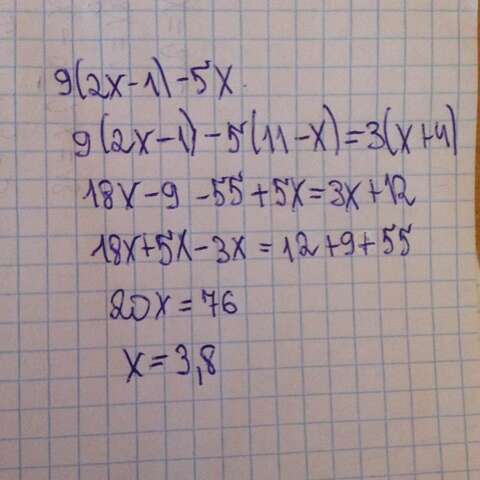 9(2x-1)-5x
9(2x-1)-5(11-x)=3(x+4)
18x-9-55+5x=3x+12
18x+5x-3x=12+9+55
20x=76
x=3,8